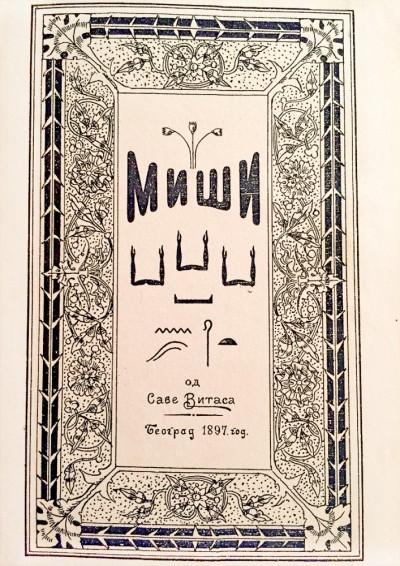 Миши
од
Саве Витаса
Београд 1897. год.